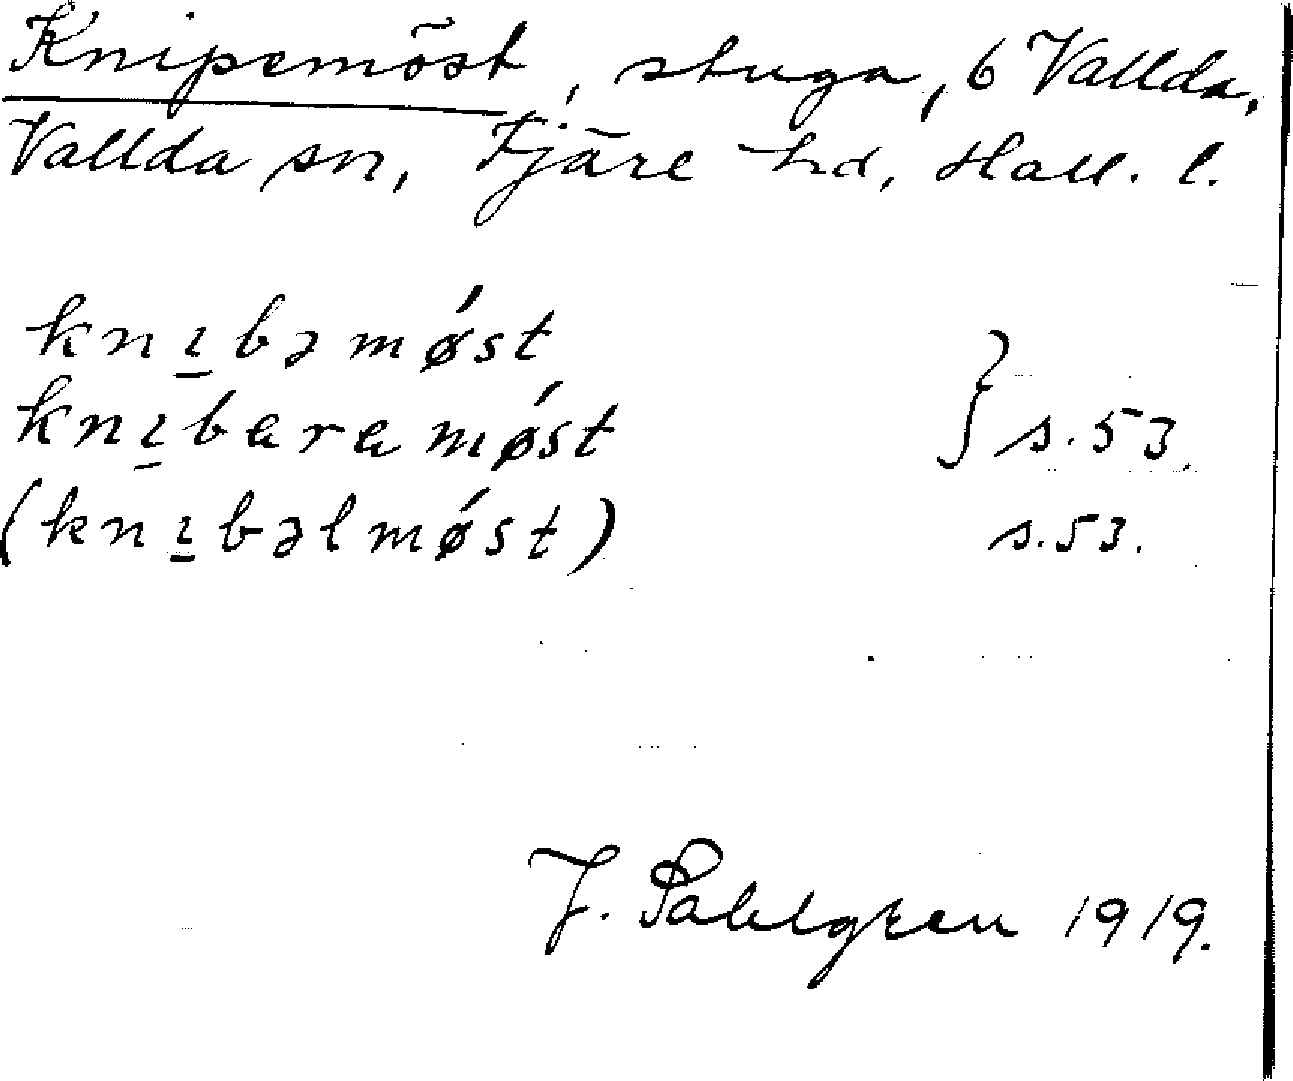 Knipemöst, stuga, 6 Vallda,
Vallda sn, Fjäre hd, Hall. l.
knɩ̱bəmǿst
knɩ̱baramǿst } s. 53.
(knɩ̱bəlmǿst) s. 53.
J. Sahlgren 1919.